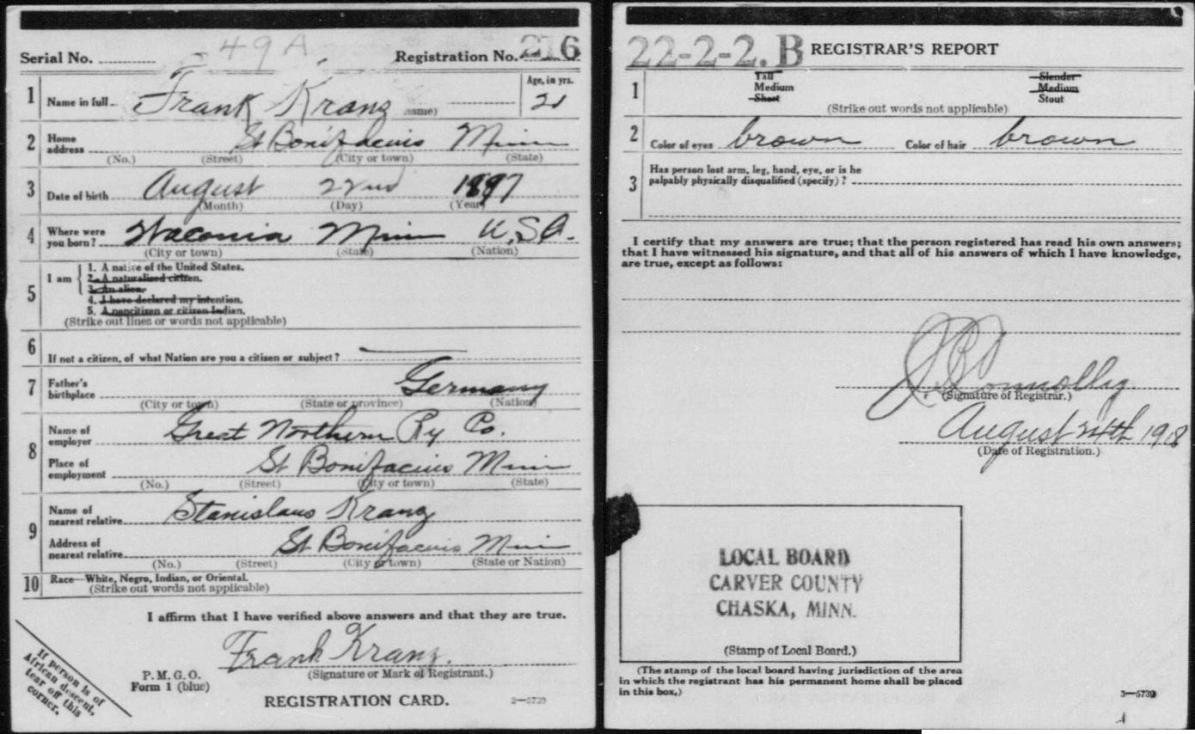 Serial No. 49 A Registration No. 216
1 Name in full Frank Kranz name) Age, in yrs. 21
2 Home address St Bonifacius Minn
(No.) (Street) (City or town) (State)
3 Date of birth August 22nd 1897
(Month) (Day) (Year)
4 Where were you born? Waconia Minn U.S.A.
(City or town) (State) (Nation)
5 I am
1. A native of the United States.
2. A naturalized citizen.
3. An alien.
4. I have declared my intention.
5. A noncitizen or citizen Indian.
(Strike out lines or words not applicable)
6 If not a citizen, of what Nation are you a citizen or subject?
7 Father's birthplace Germany
(City or town) (State or province) (Nation)
8 Name of employer Great Northern Ry Co.
Place of employment St Bonifacius Minn
(No.) (Street) (City or town) (State)
9 Name of nearest relative Stanislaus Kranz
Address of nearest relative St Bonifacius Minn
(No.) (Street) (City or town) (State or Nation)
10 Race—White, Negro, Indian, or Oriental.
(Strike out words not applicable)
I affirm that I have verified above answers and that they are true.
Frank Kranz.
(Signature or Mark of Registrant.)
P. M. G. O.
Form 1 (blue)
REGISTRATION CARD.
If person is of
African descent,
tear off this
corner.
22-2-2. B REGISTRAR'S REPORT
1 Tall Slender
Medium Medium
Short Stout
(Strike out words not applicable)
2 Color of eyes brown Color of hair brown
3 Has person lost arm, leg, hand, eye, or is he
palpably physically disqualified (specify)?
I certify that my answers are true; that the person registered has read his own answers;
that I have witnessed his signature, and that all of his answers of which I have knowledge,
are true, except as follows:
Connolly
(Signature of Registrar.)
August 24th 1918
(Date of Registration.)
LOCAL BOARD
CARVER COUNTY
CHASKA, MINN.
(Stamp of Local Board.)
(The stamp of the local board having jurisdiction of the area
in which the registrant has his permanent home shall be placed
in this box.)
3—5739